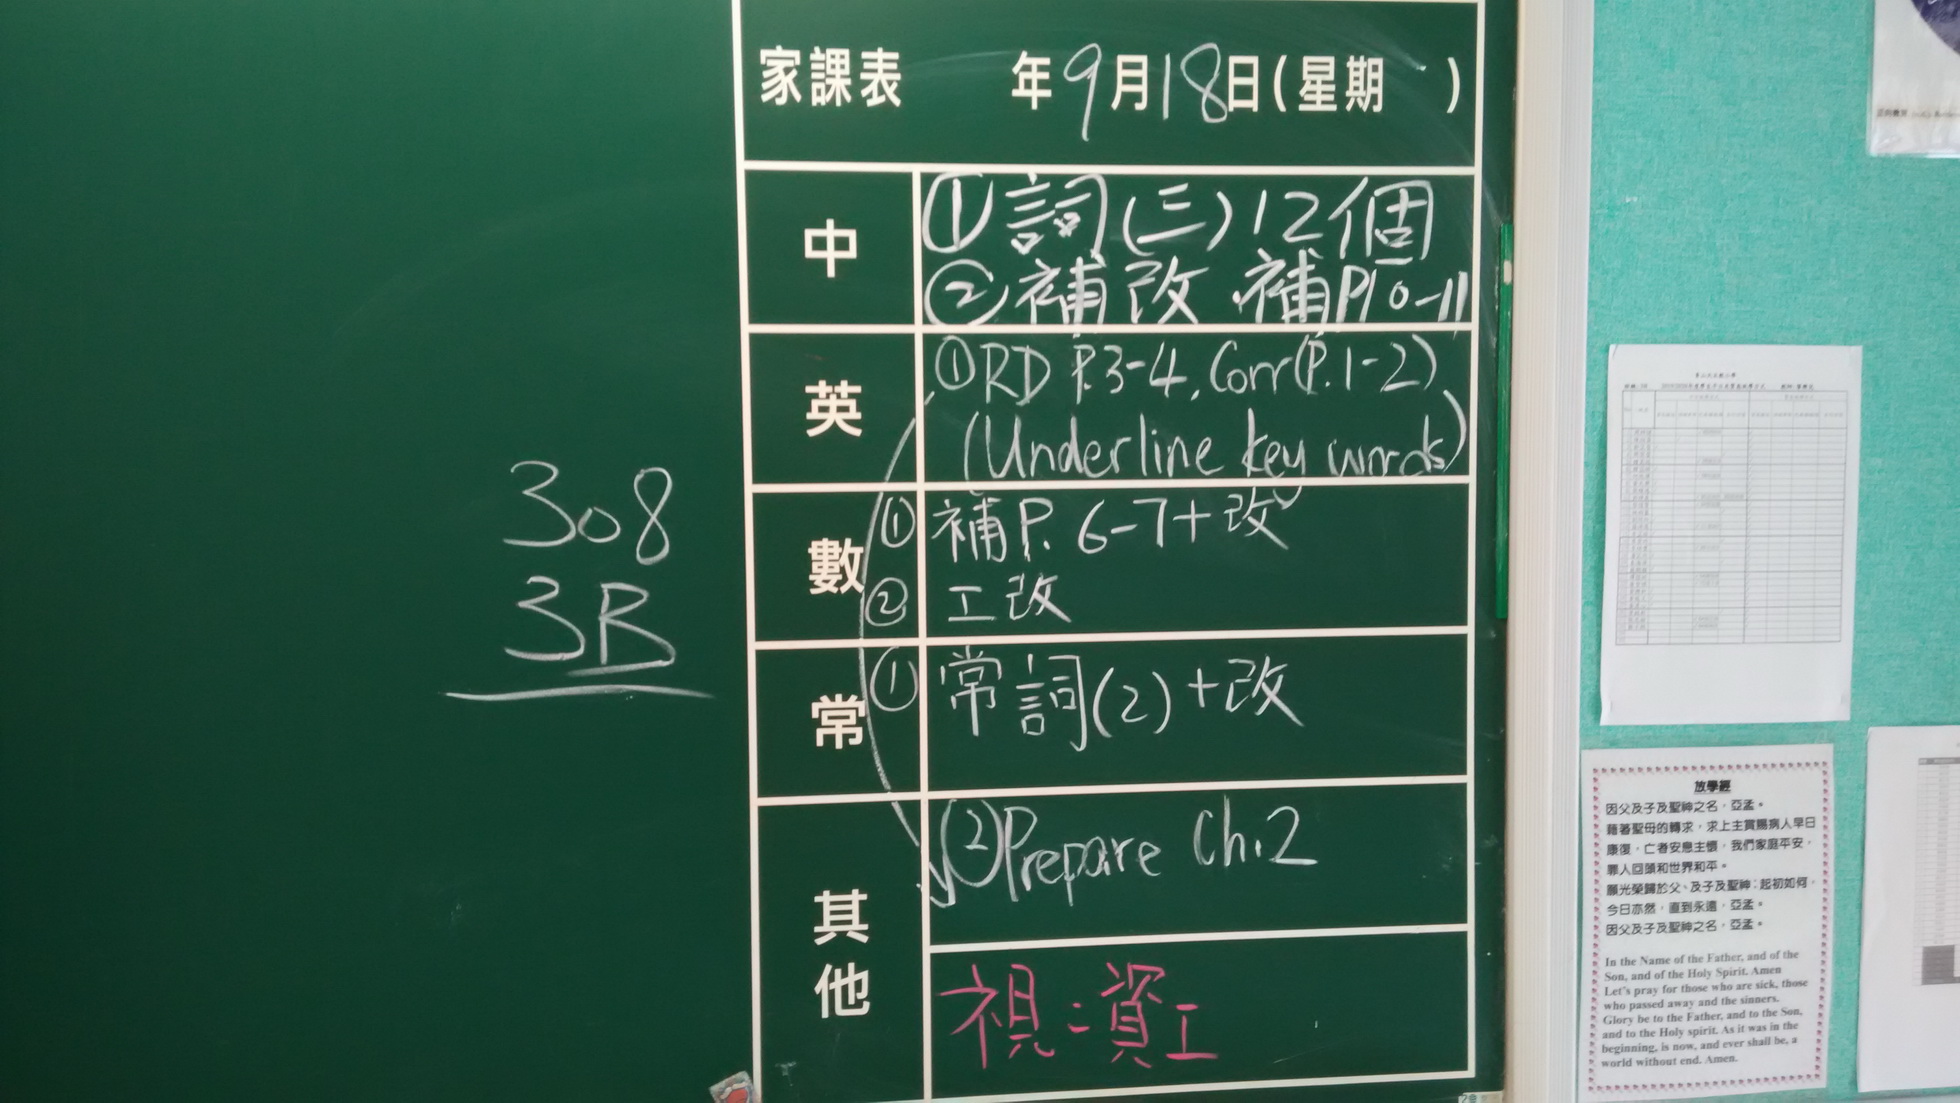 家課表 年9月18日(星期 )
中
①詞(三)12個
②補改.補P10-11
英
①RD P.3-4, Corr(P.1-2)
(Underline key words)
數
①補P. 6-7+改
②工改
常
①常詞(2)+改
其他
②Prepare Ch.2
視:資工
308
3B
放學經
因父及子及聖神之名,亞孟。
藉著聖母的轉求,求上主賞賜病人早日
康復,亡者安息主懷,我們家庭平安,
罪人回頭和世界和平。
願光榮歸於父、及子及聖神:起初如何,
今日亦然,直到永遠,亞孟。
因父及子及聖神之名,亞孟。
In the Name of the Father, and of the
Son, and of the Holy Spirit. Amen
Let's pray for those who are sick, those
who passed away and the sinners.
Glory be to the Father, and to the Son,
and to the Holy spirit. As it was in the
beginning, is now, and ever shall be, a
world without end. Amen.